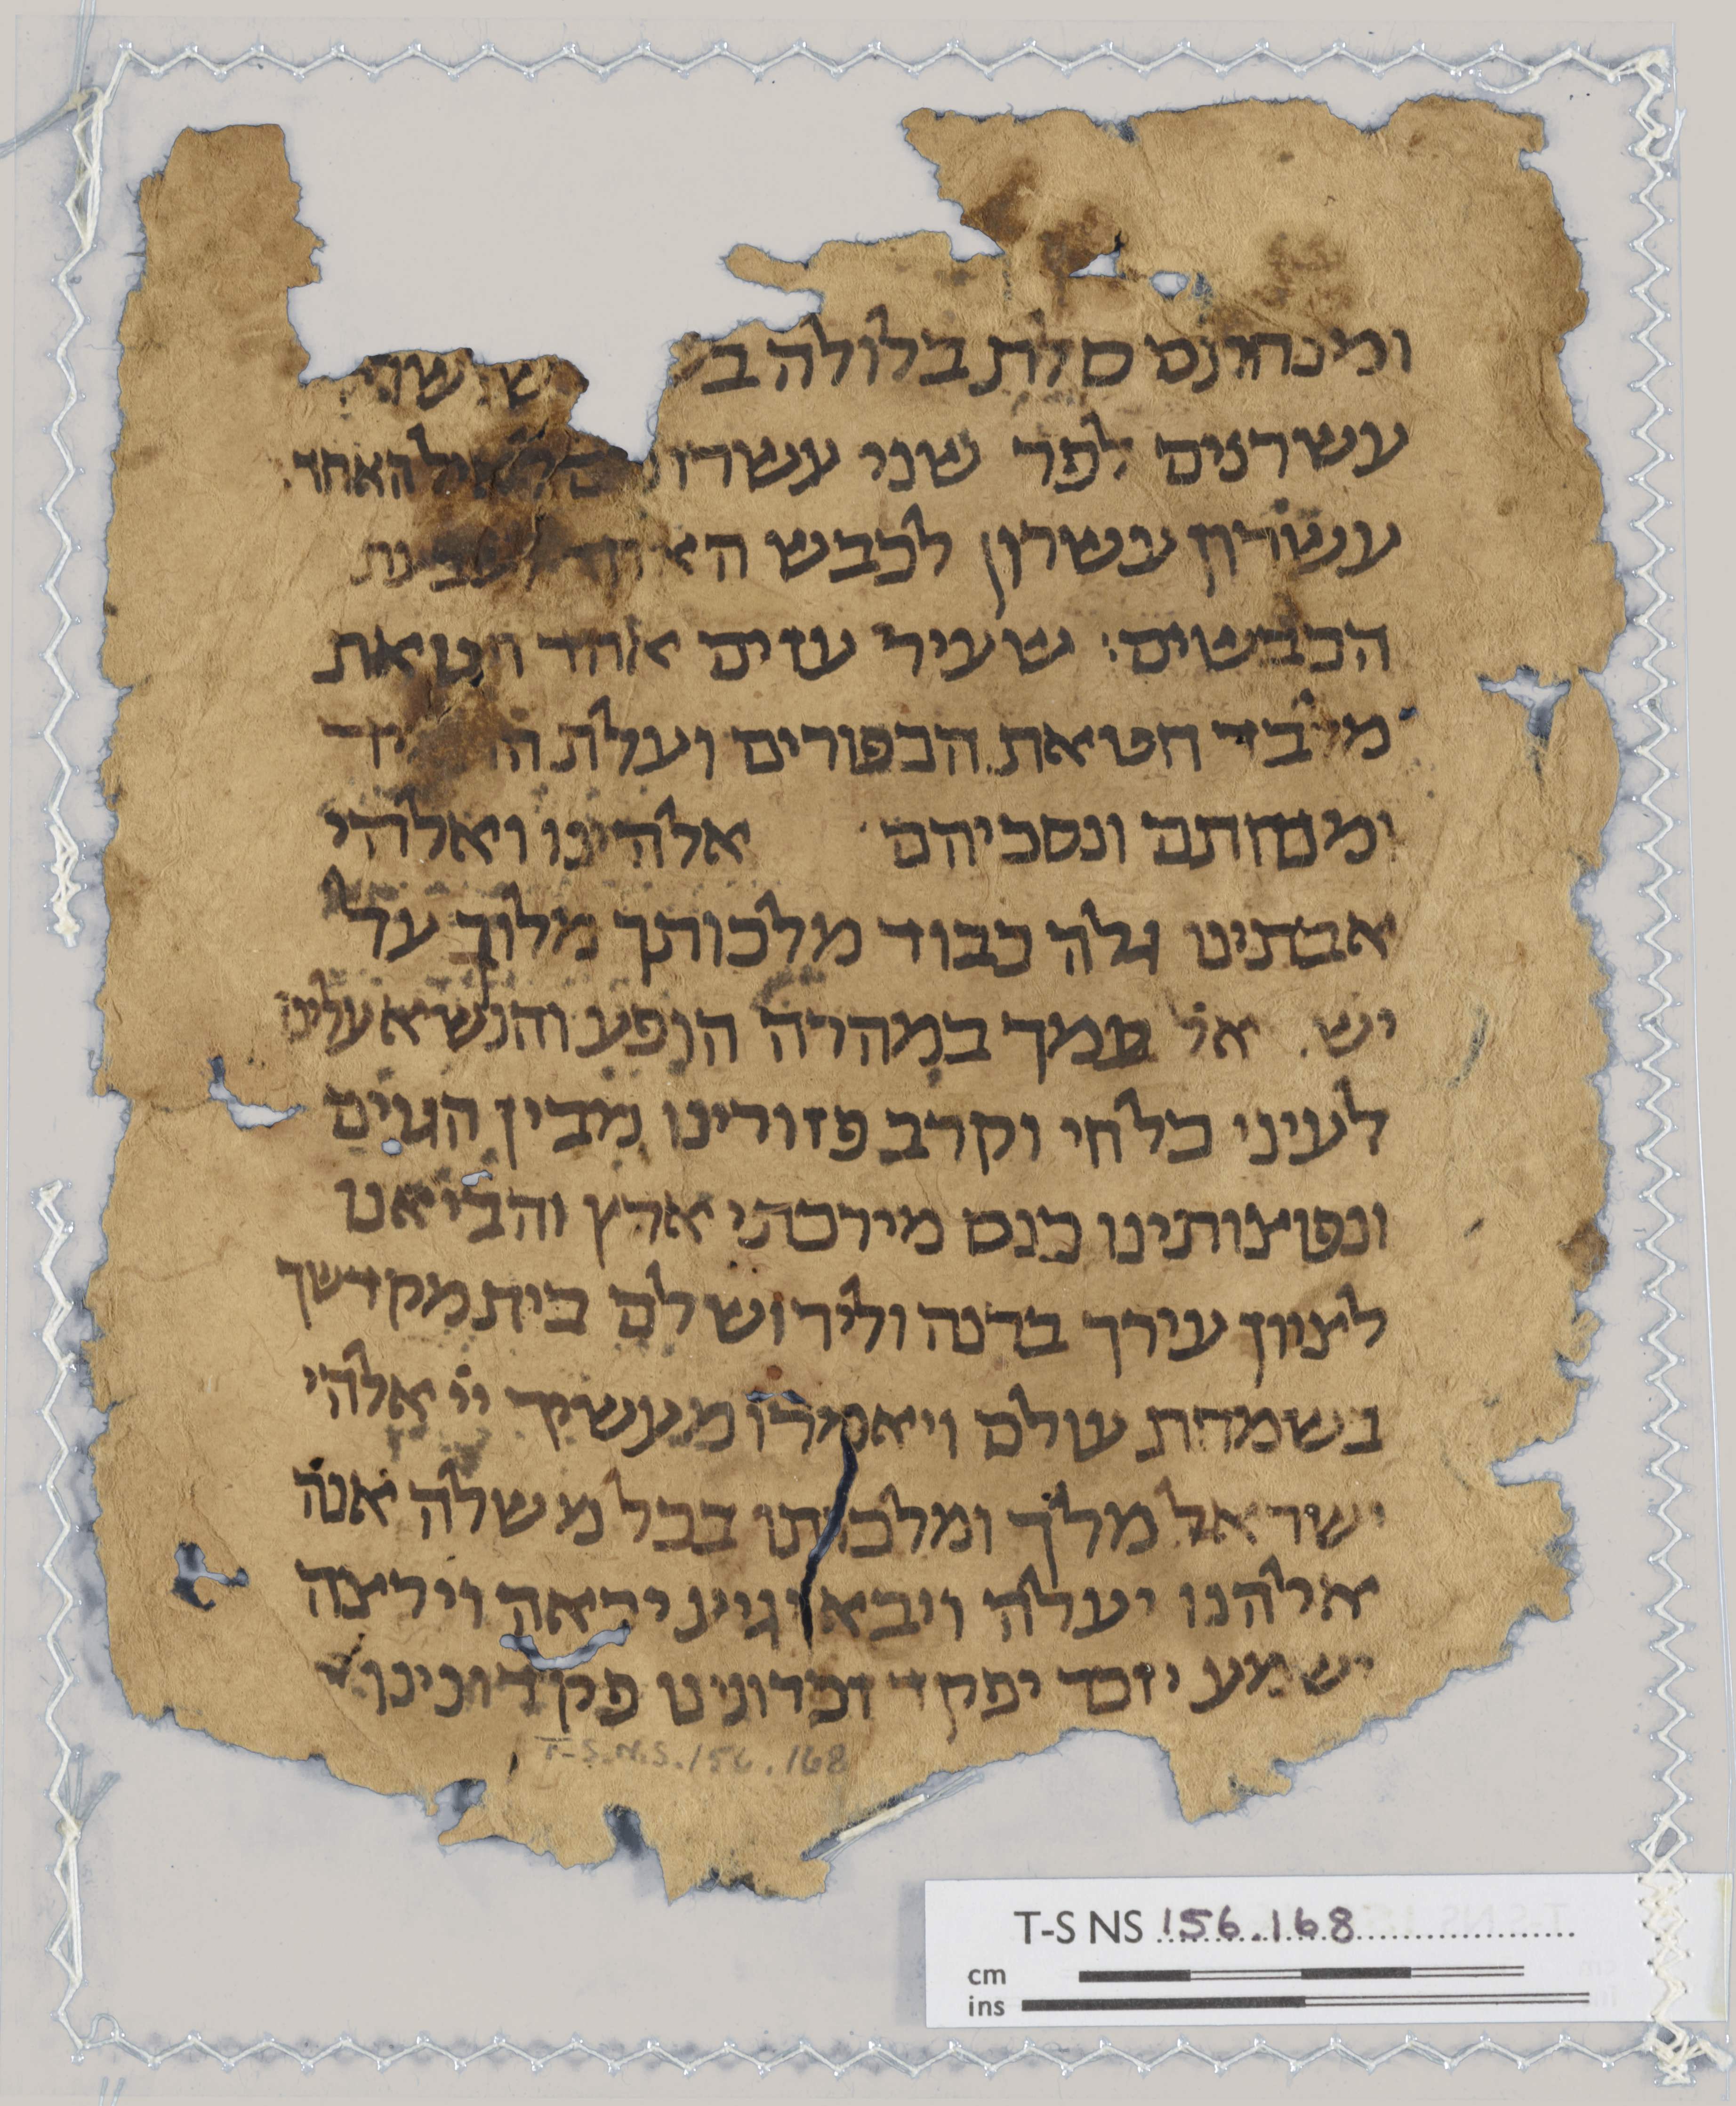 ומנחתם סלת בלולה
עשרנים לפר שני עשרונים לאיל האחד
עשרון עשרון לכבש האחד לשבעת
הכבשים: שעיר עזים אחד חטאת
מלבד חטאת הכפורים ועלת התמיד
ומנחתם ונסכיהם אלהינו ואלהי
אבתינו גלה כבוד מלכותך מלוך על
ישראל עמך במהרה הופע והנשא עלינו
לעיני כל חי וקרב פזורינו מבין הגוים
ונפוצותינו כנס מירכתי ארץ והביאנו
לציון עירך ברנה ולירושלם בית מקדשך
בשמחת עולם ויאמרו מעשיך ייי אלהי
ישראל מלך ומלכותו בכל משלה אנה
אלהנו יעלה ויבא ויגיע יראה וירצה
ישמע יזכר יפקד זכרונינו פקדונינו
T-S.N.S.156.168
T-S NS 156.168
cm
ins